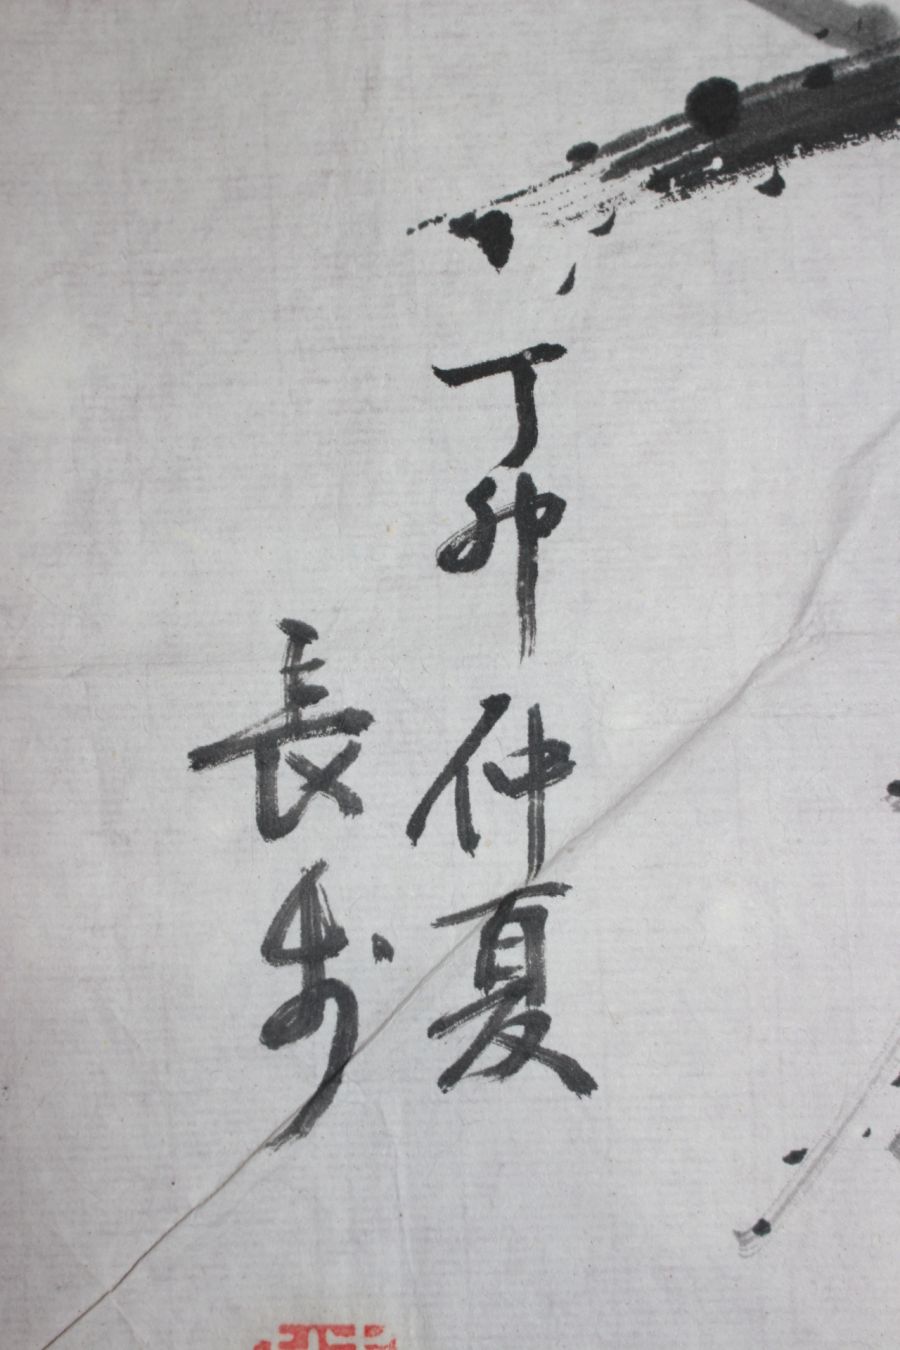 丁卯仲夏
長